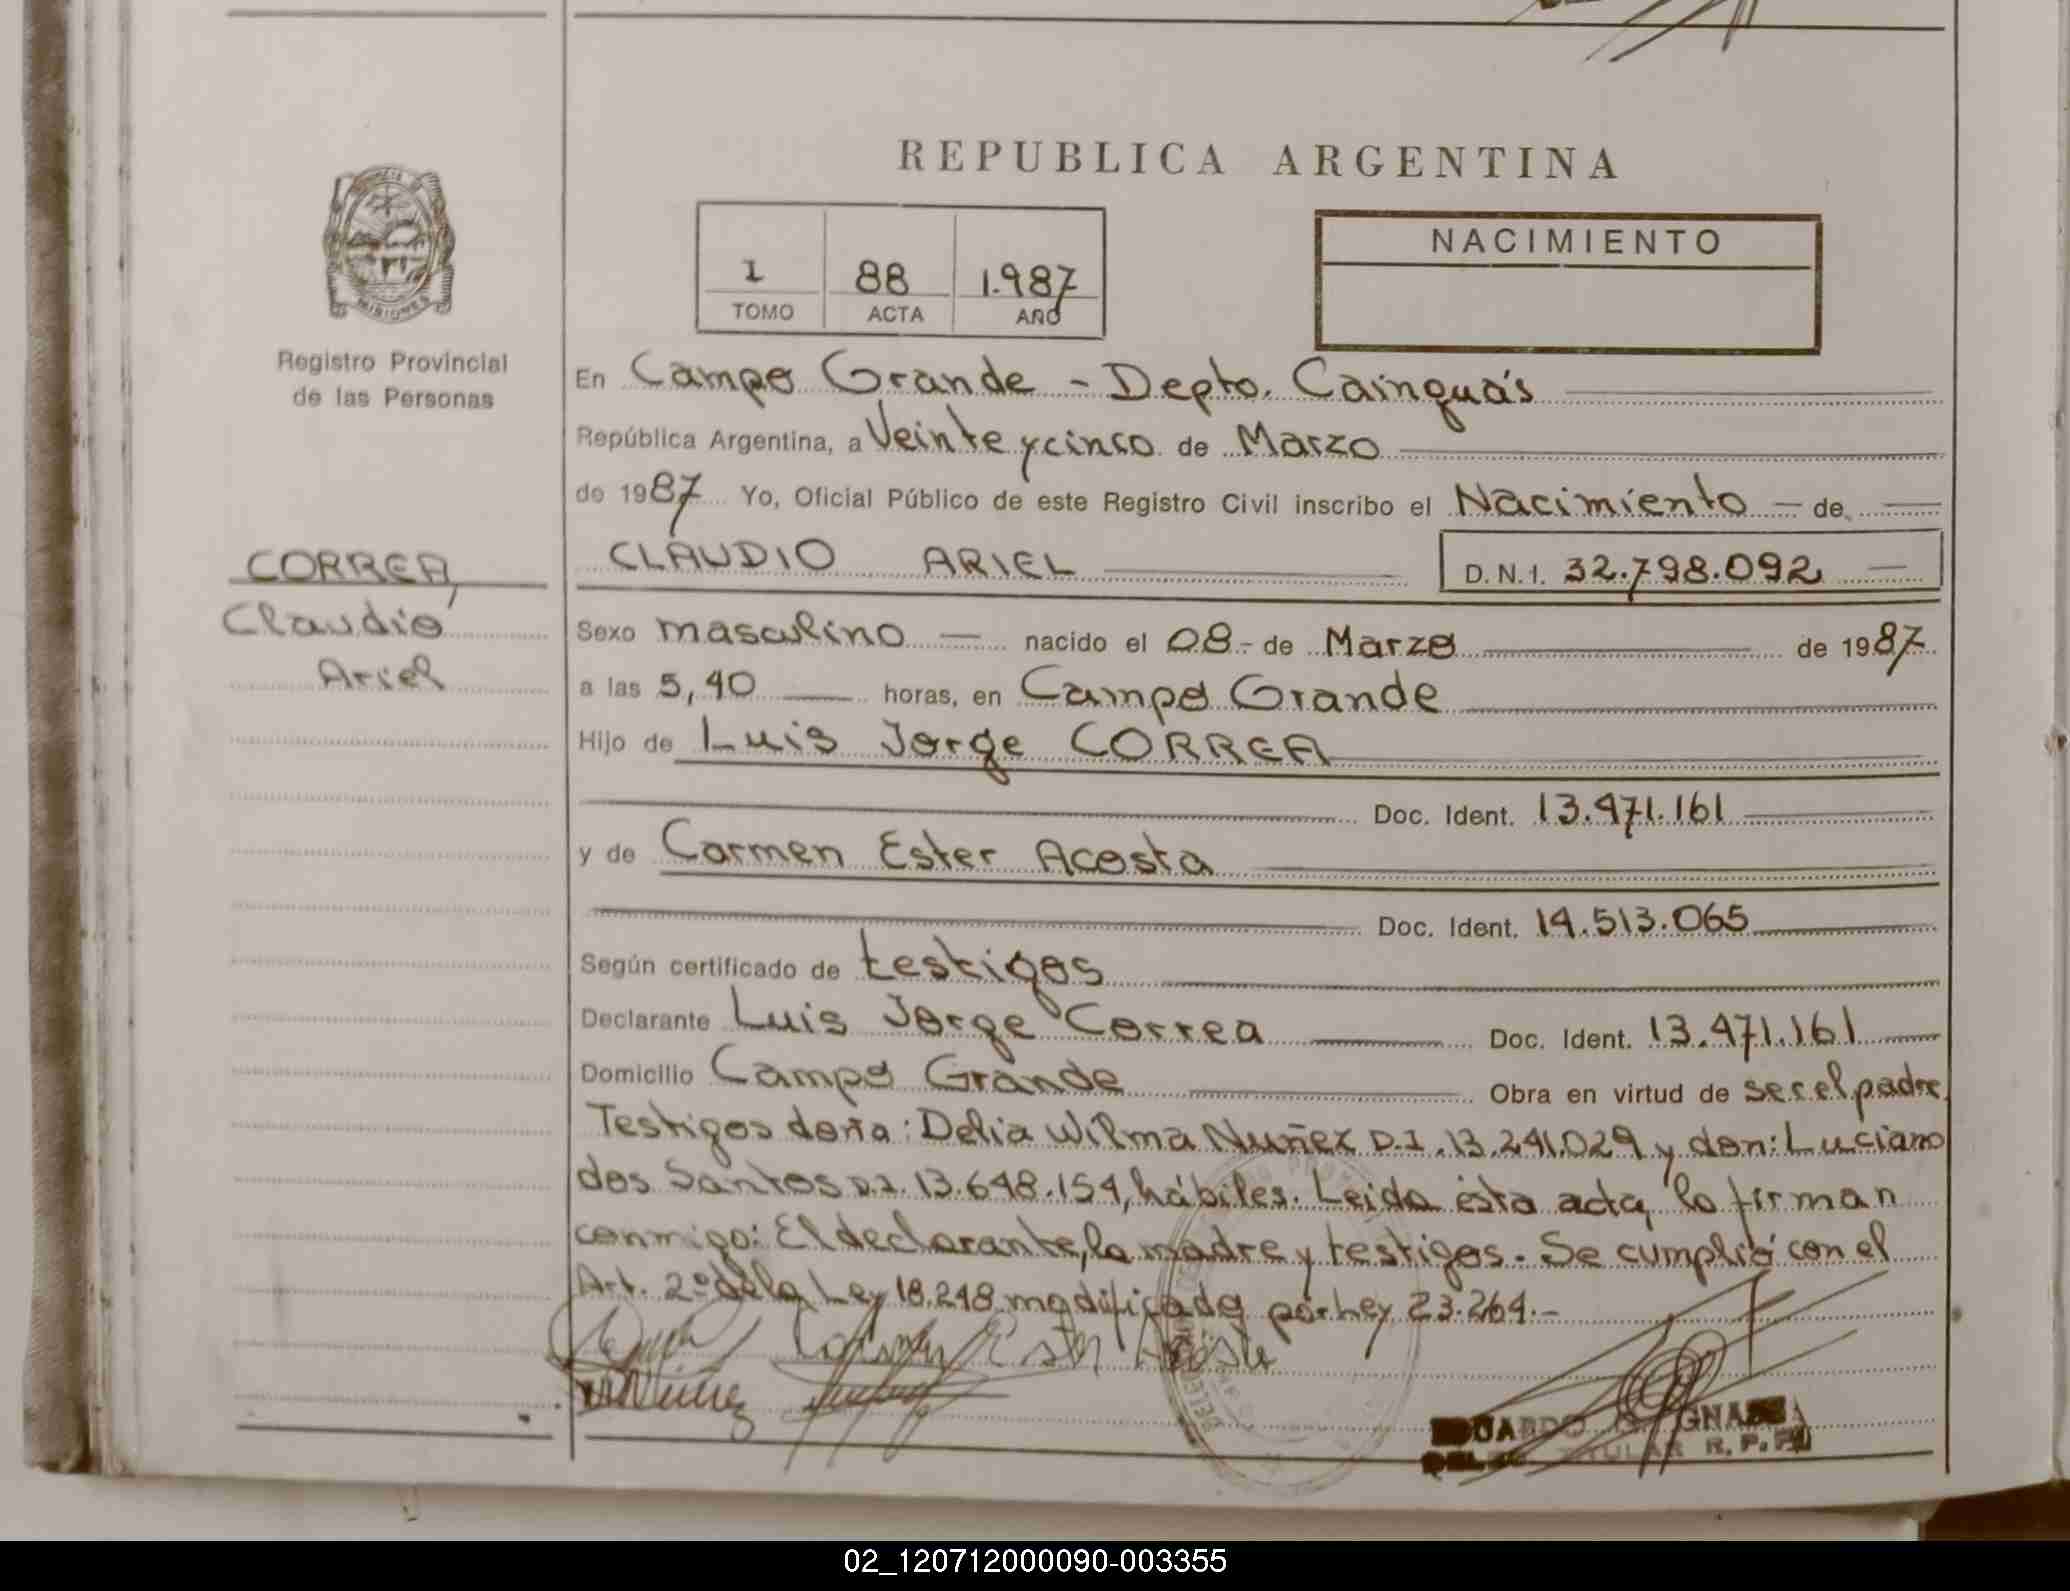 REPUBLICA ARGENTINA
I 88 1.987
TOMO ACTA AÑO
NACIMIENTO
MISIONES
Registro Provincial
de las Personas
CORREA,
Claudio
Ariel
En Campo Grande - Depto. Cainguás
República Argentina, a Veinte y cinco de Marzo
de 1987 Yo, Oficial Público de este Registro Civil inscribo el Nacimiento de
CLAUDIO ARIEL D.N.I. 32.798.092
Sexo masculino nacido el 08 - de Marzo de 1987
a las 5,40 horas, en Campo Grande
Hijo de Luis Jorge CORREA
Doc. Ident. 13.471.161
y de Carmen Ester Acosta
Doc. Ident. 14.513.065
Según certificado de testigos
Declarante Luis Jorge Correa Doc. Ident. 13.471.161
Domicilio Campo Grande Obra en virtud de ser el padre.
Testigos doña: Delia Wilma Nuñez D.I. 13.241.029 y don: Luciano
dos Santos D.I. 13.648.154, hábiles. Leida ésta acta, la firman
conmigo: El declarante, la madre y testigos. Se cumplió con el
Art. 2º de la Ley 18.248 modificada por Ley 23.264.-
Carmen Ester Acosta
R. P. P.
02_120712000090-003355